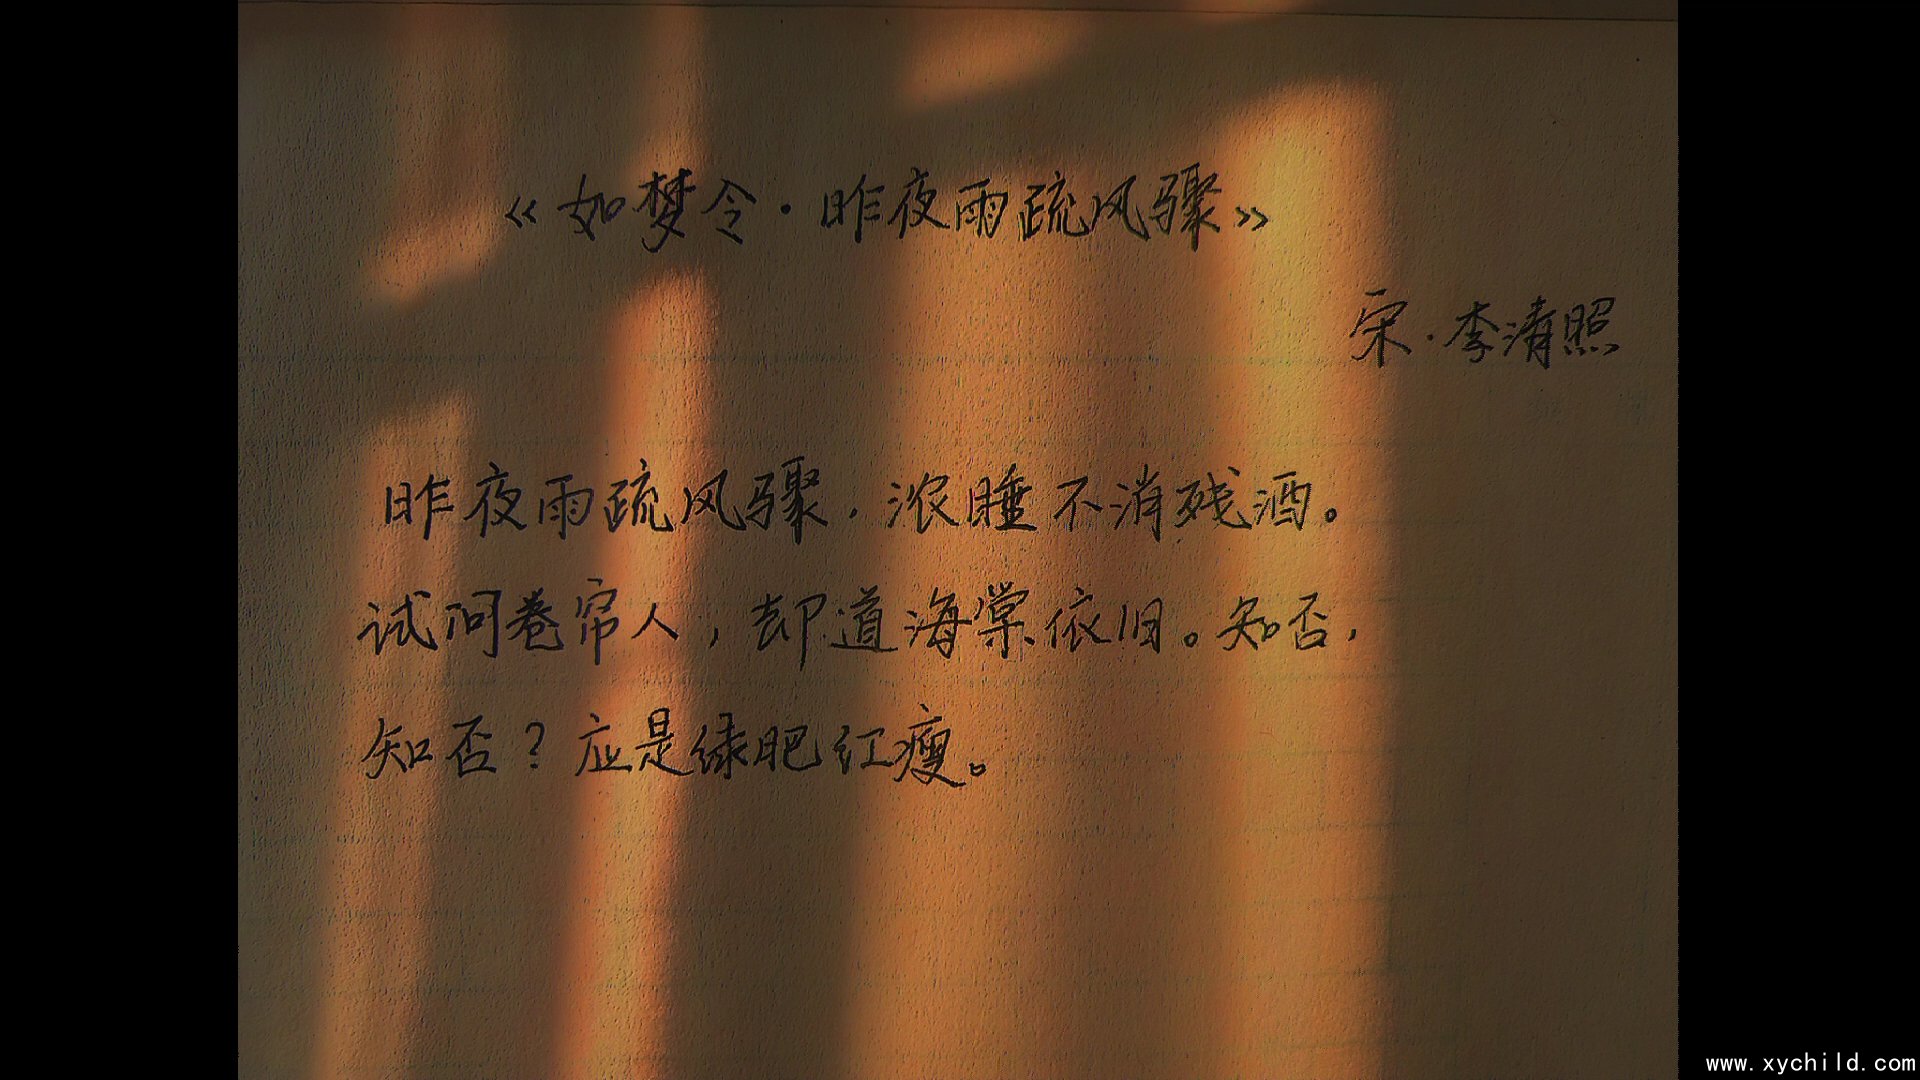 《如梦令·昨夜雨疏风骤》
宋·李清照
昨夜雨疏风骤，浓睡不消残酒。
试问卷帘人，却道海棠依旧。知否，
知否？应是绿肥红瘦。
www.xychild.com